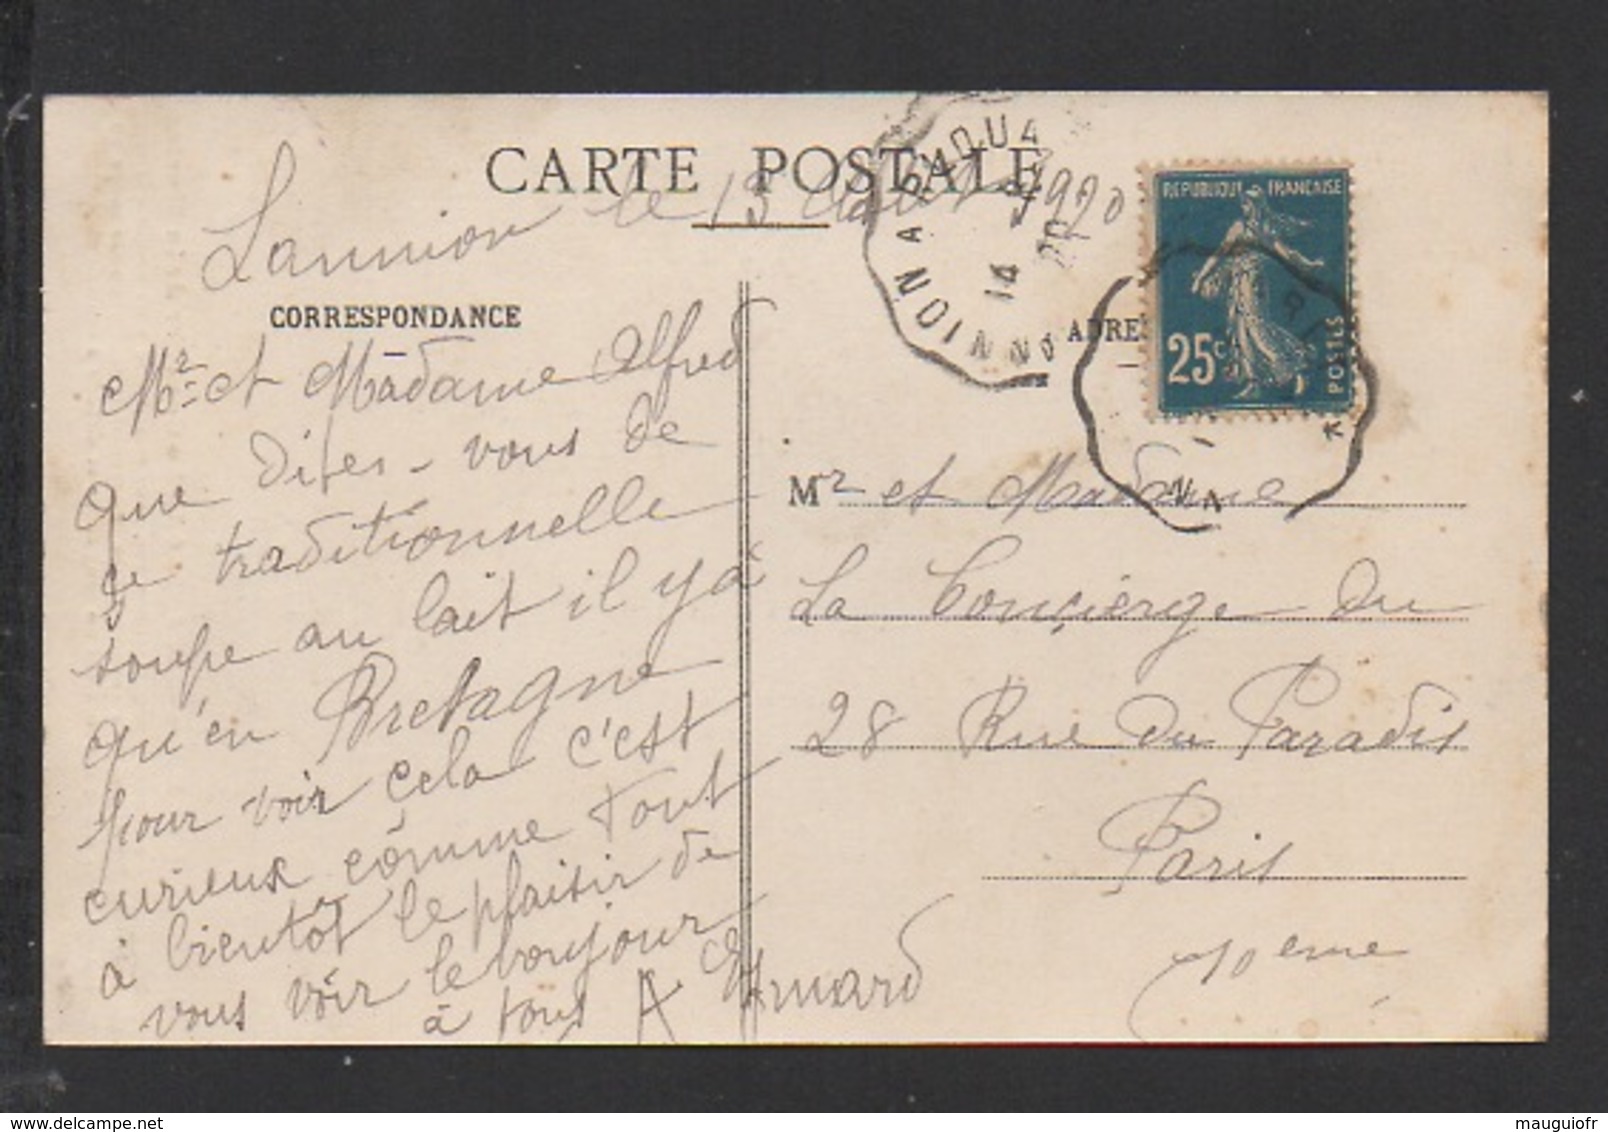 CARTE POSTALE
Lannion le 13 Août 1920
CORRESPONDANCE
Mr et Madame Alfred
que dites-vous de
ce traditionnelle
soupe au lait il y à
qu'en Bretagne
pour voir çela c'est
curieux comme tout
à bientôt le plaisir de
vous voir le bonjour
à tous A Esmard
LANNION A PLOUA
14 -8
20
REPUBLIQUE FRANÇAISE
25c
POSTES
ADRE
Mr et Madame
La Conçierge du
28 Rue du Paradis
Paris
10eme
delcampe.net
mauguiofr